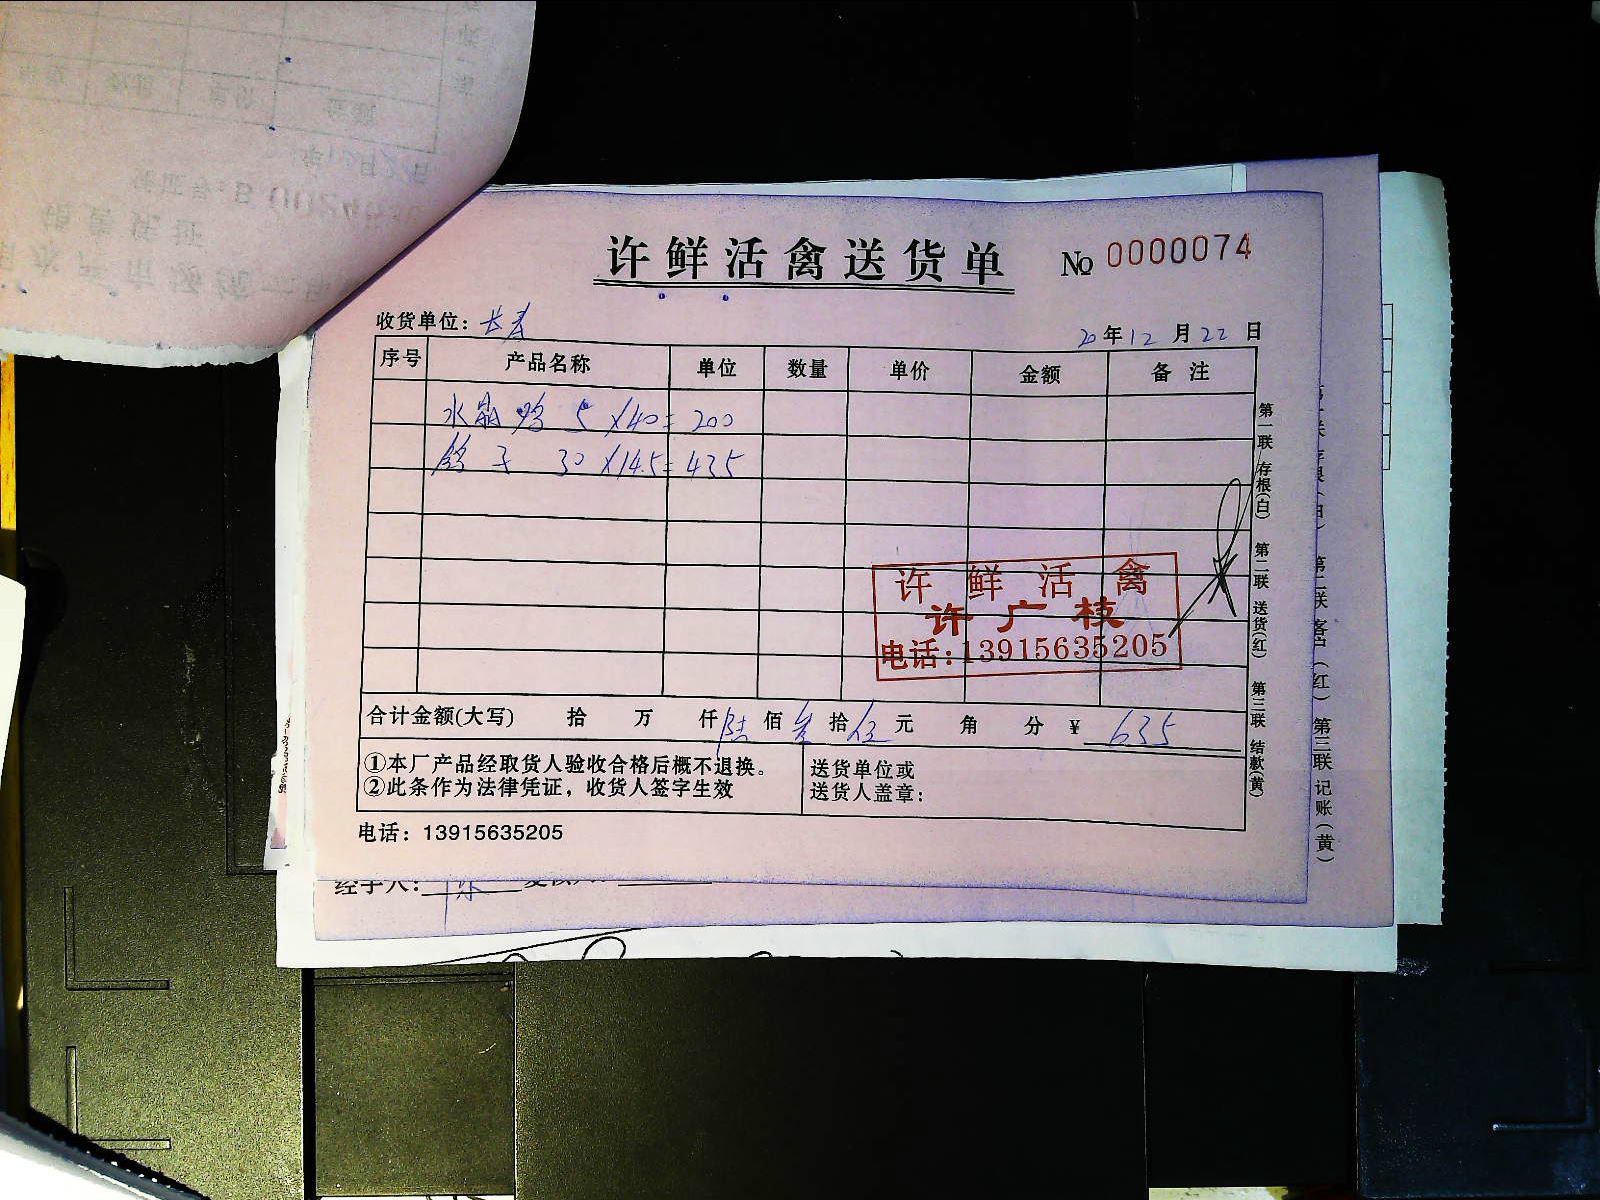 许鲜活禽送货单 № 0000074
收货单位：长寿 20年12月22日
序号 产品名称 单位 数量 单价 金额 备注
水晶鸭 5×40=200
鸽子 30×14.5=435
第一联 存根(白) 第二联 送货(红) 第三联 结款(黄)
许鲜活禽
许广枝
电话:13915635205
合计金额(大写) 拾 万 仟陆佰叁拾伍元 角 分 ¥ 635
①本厂产品经取货人验收合格后概不退换。
②此条作为法律凭证，收货人签字生效
送货单位或
送货人盖章：
电话：13915635205
第二联 客户(红) 第三联 记账(黄)
经手人：